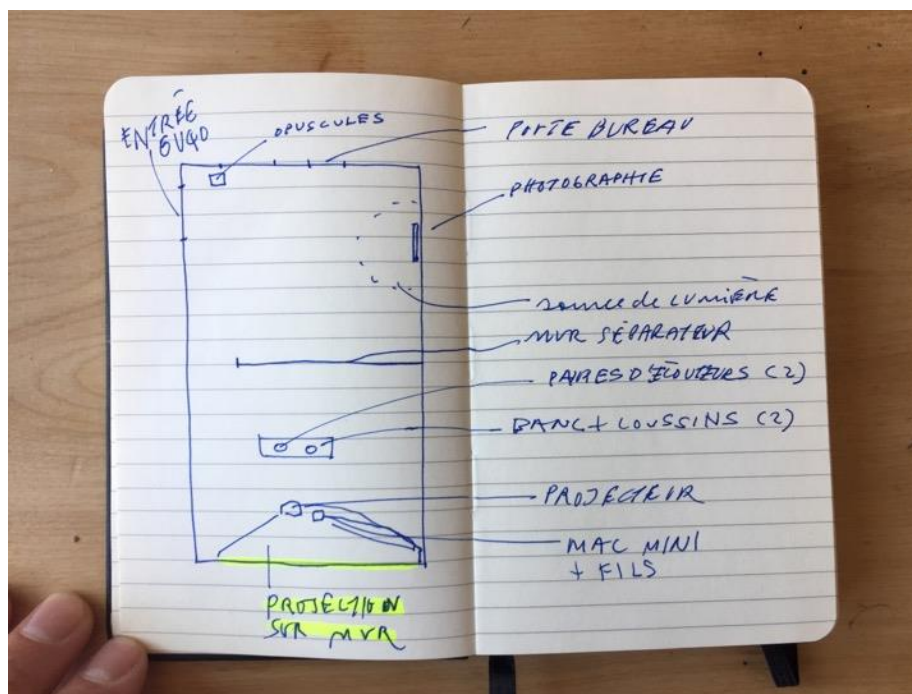 ENTRÉE
GUQO
OPUSCULES
PORTE BUREAU
PHOTOGRAPHIE
source de LUMIÈRE
MUR SÉPARATEUR
PAIRES D'ÉCOUTEURS (2)
BANC + COUSSINS (2)
PROJECTEUR
MAC MINI
+ FILS
PROJECTION
SUR MUR